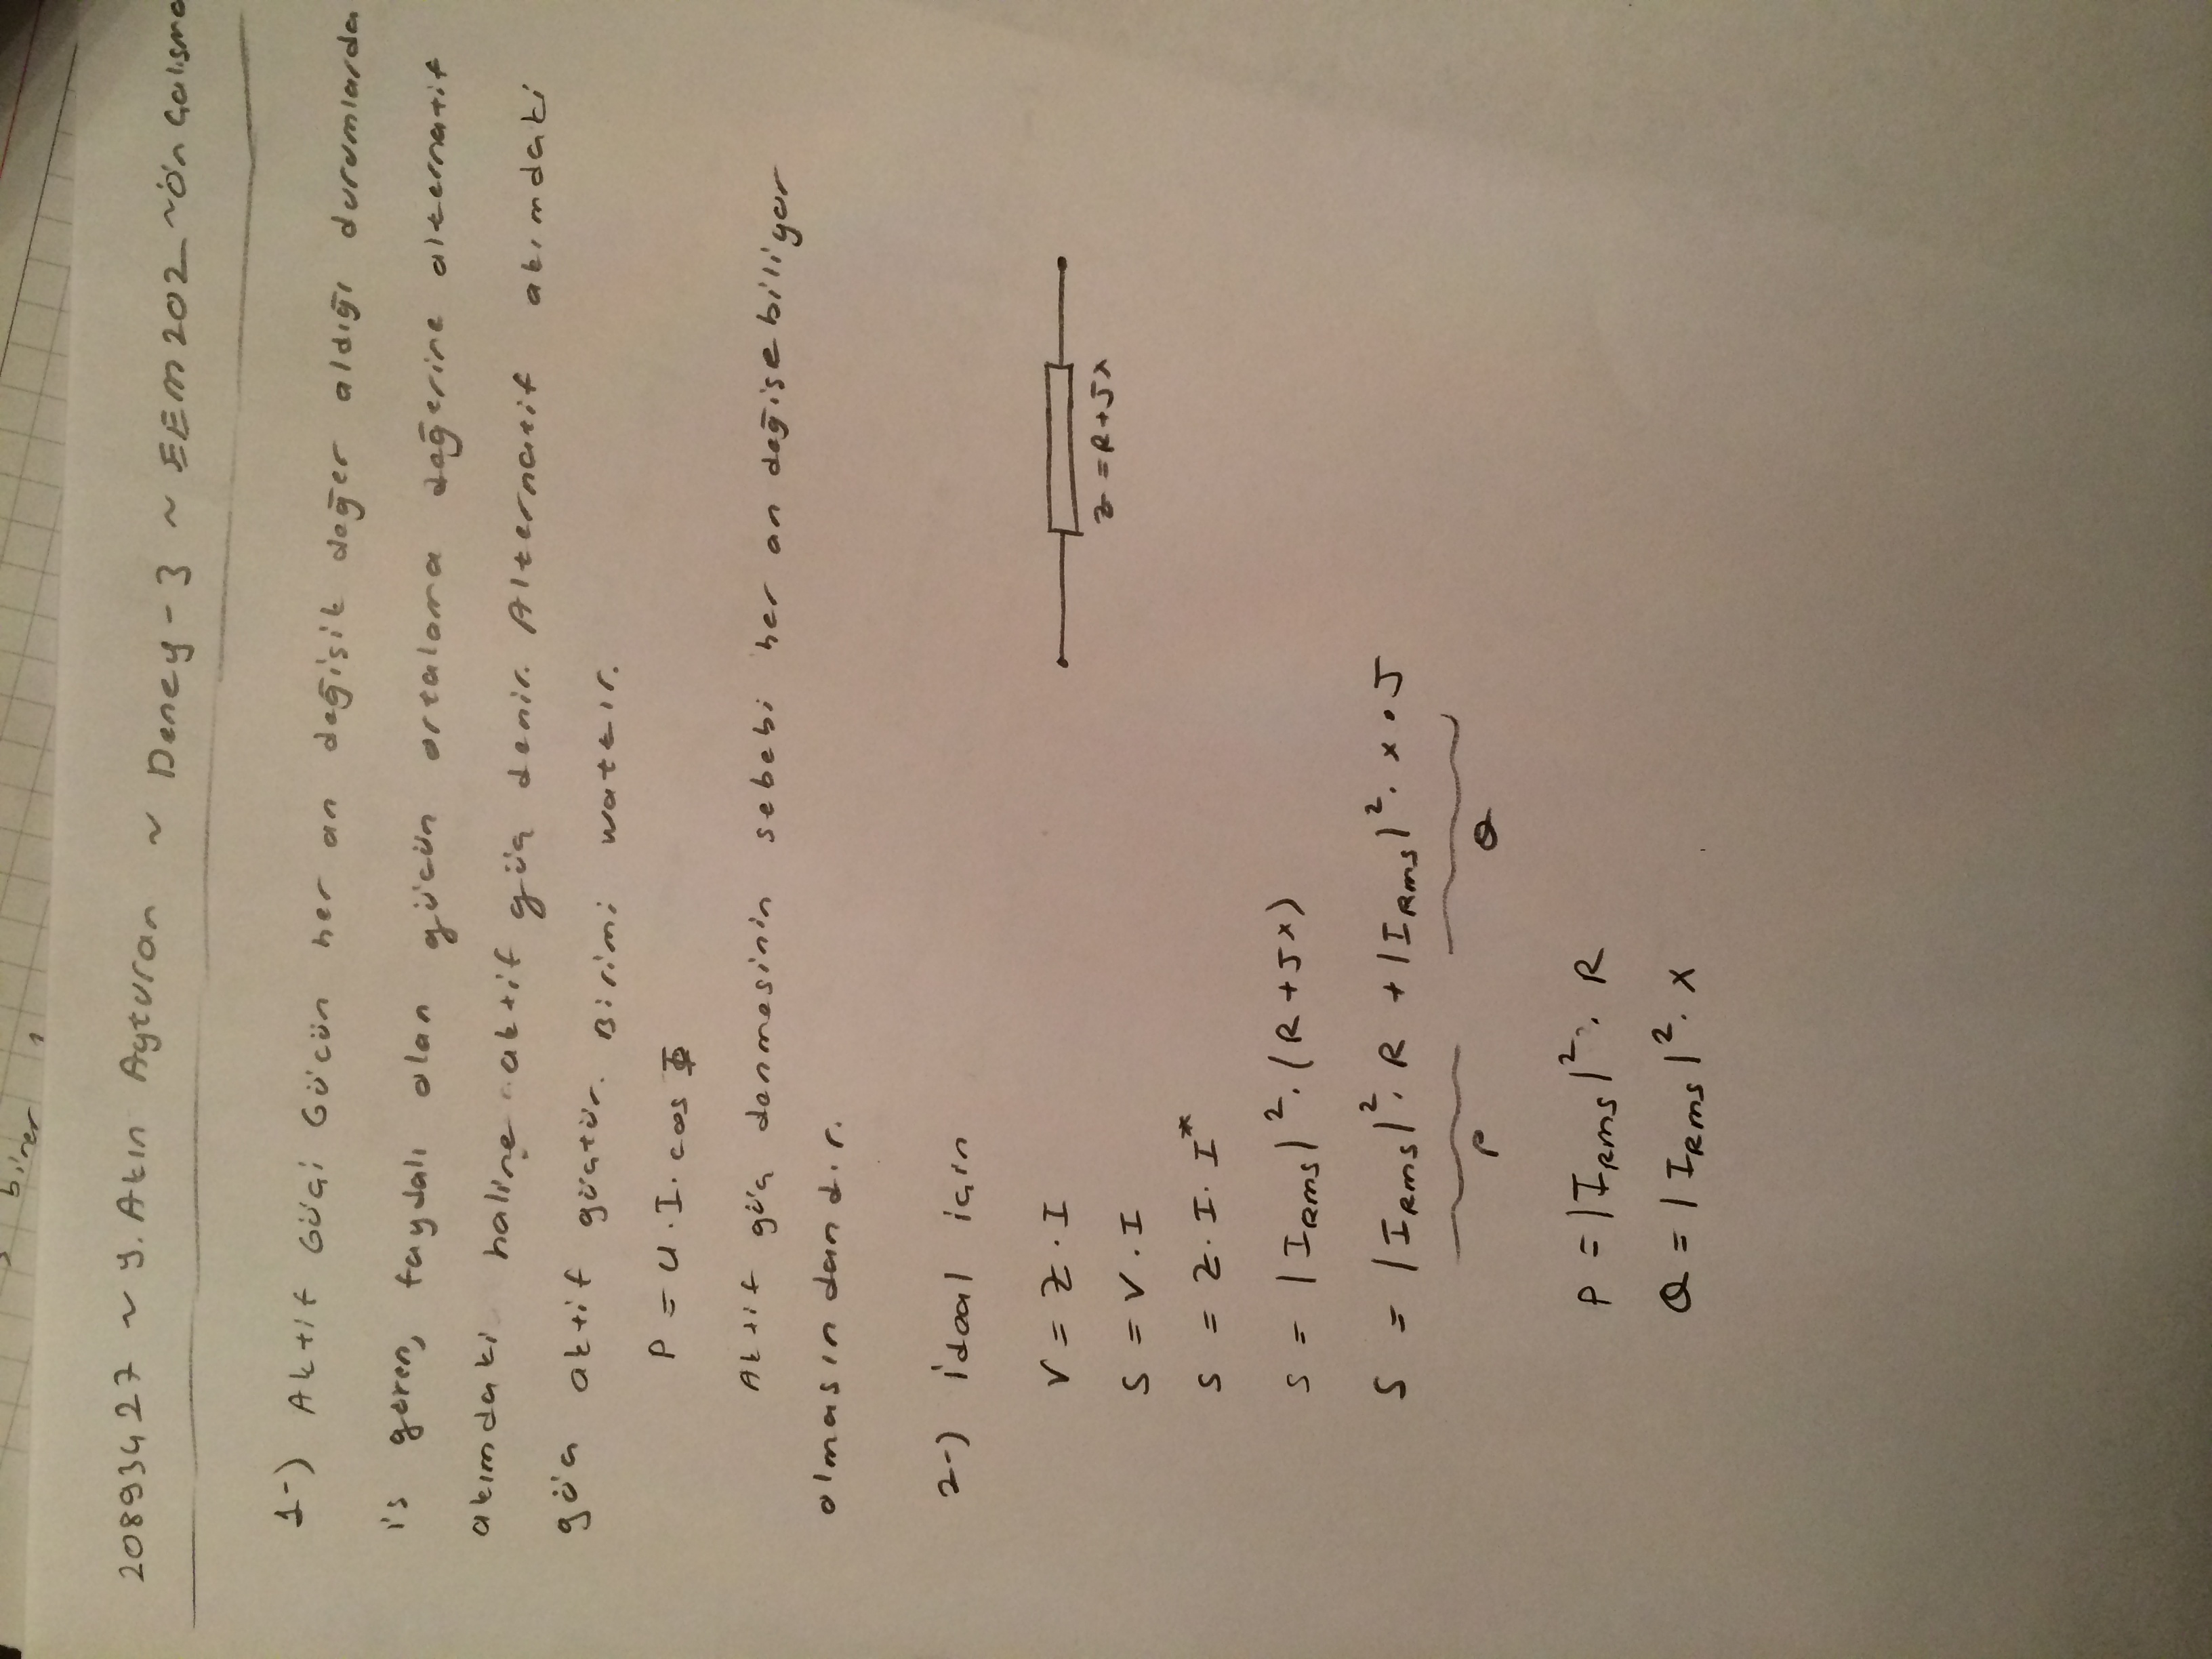 biner 1
20893427 ~ Y. Akın Ayturan ~ Deney-3 ~ EEM202 ~Ön Çalışma
1-) Aktif Güç; Gücün her an değişik değer aldığı durumlarda
iş gören, faydalı olan gücün ortalama değerine alternatif
akımdaki haline aktif güç denir. Alternatif akımdaki
güç aktif güçtür. Birimi wattır.
P = U . I . cos Φ
Aktif güç denmesinin sebebi her an değişebiliyor
olmasındandır.
2-) İdeal için
V = Z . I
Z = R+Jx
S = V . I
S = Z . I . I*
S = |I_RMS|² . (R + Jx)
S = |I_RMS|² . R + |I_RMS|² . x . J
P Q
P = |I_RMS|² . R
Q = |I_RMS|² . x